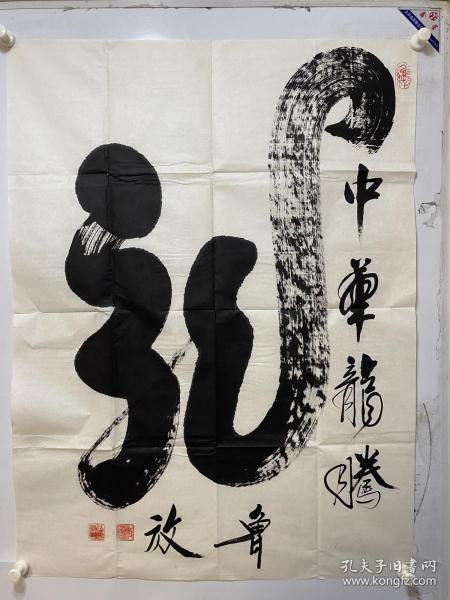 龍
中華龍騰
魯放
孔夫子旧书网
www.kongfz.com